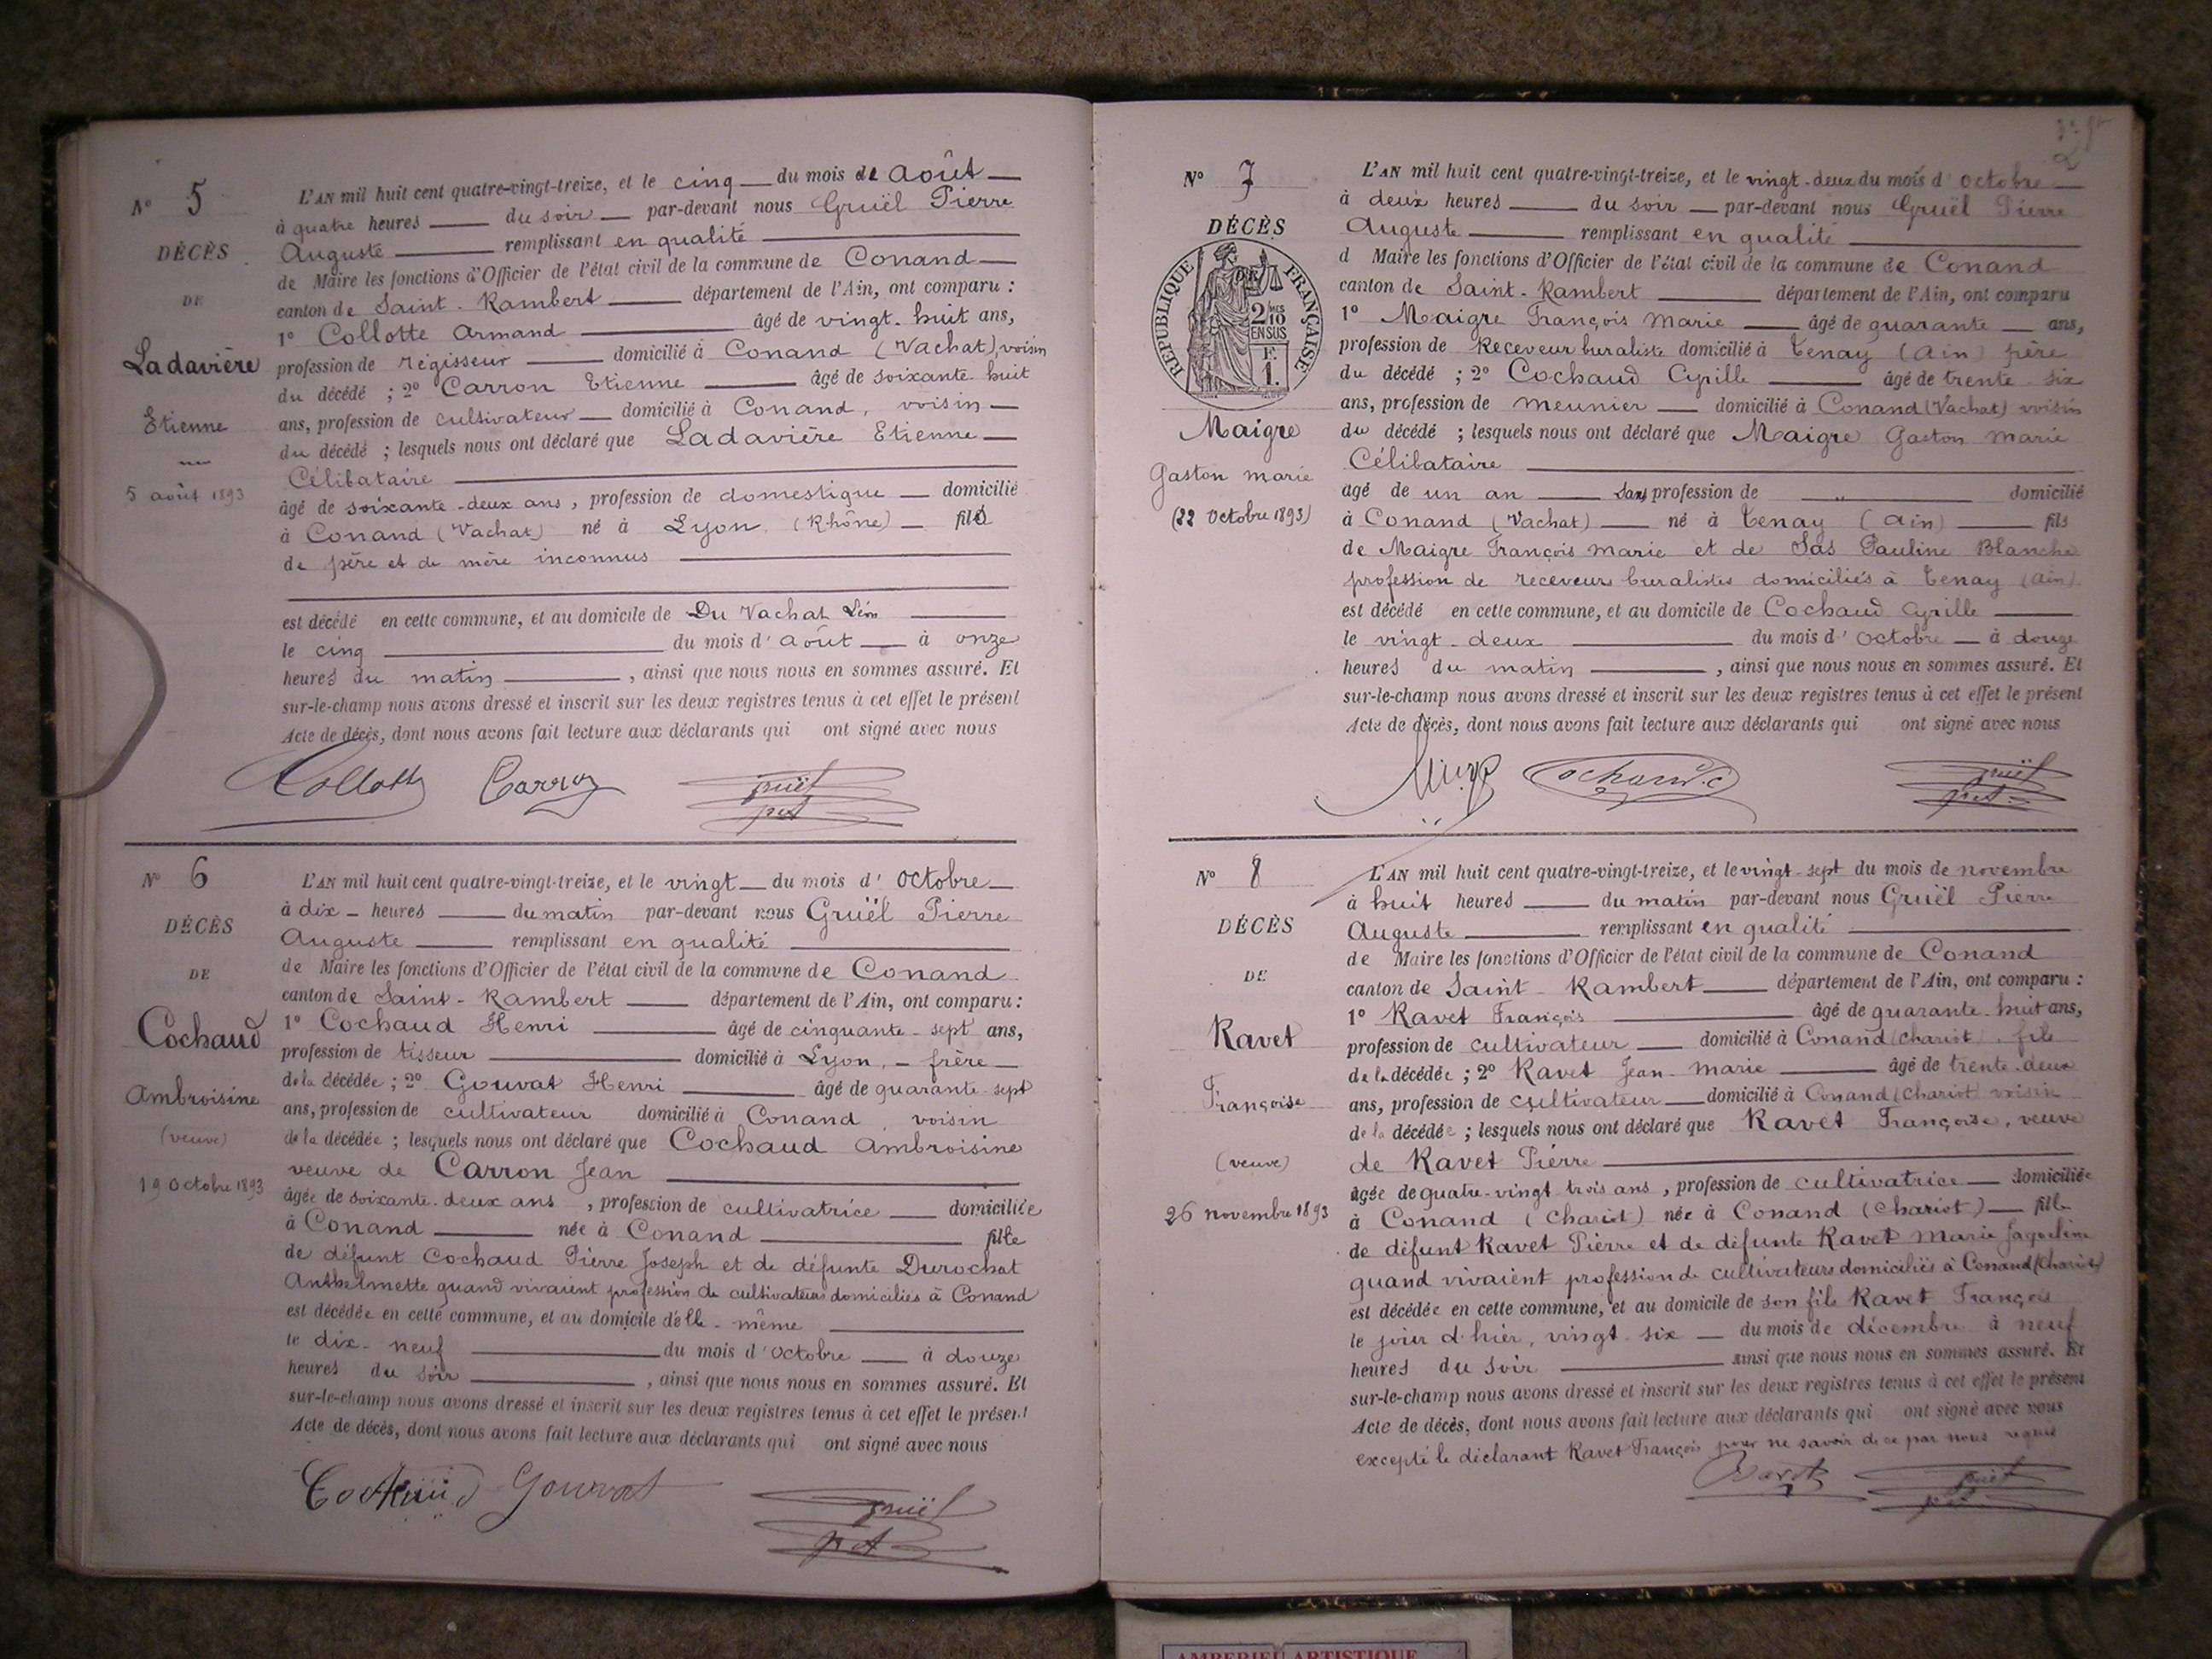 N° 5
DÉCÈS
DE
Ladavière
Etienne
5 août 1893
L'AN mil huit cent quatre-vingt-treize, et le cinq du mois de Août
à quatre heures du soir par-devant nous Gruël Pierre
Auguste remplissant en qualité
de Maire les fonctions d'Officier de l'état civil de la commune de Conand
canton de Saint-Rambert département de l'Ain, ont comparu :
1° Collotte Armand âgé de vingt-huit ans,
profession de régisseur domicilié à Conand (Vachat), voisin
du décédé ; 2° Carron Etienne âgé de soixante-huit
ans, profession de cultivateur domicilié à Conand, voisin
du décédé ; lesquels nous ont déclaré que Ladavière Etienne
Célibataire
âgé de soixante-deux ans, profession de domestique domicilié
à Conand (Vachat) né à Lyon (Rhône) fils
de père et de mère inconnus
est décédé en cette commune, et au domicile de Du Vachat Léon
le cinq du mois d'août à onze
heures du matin, ainsi que nous nous en sommes assuré. Et
sur-le-champ nous avons dressé et inscrit sur les deux registres tenus à cet effet le présent
Acte de décès, dont nous avons fait lecture aux déclarants qui ont signé avec nous
Collotte Carron gruël
N° 6
DÉCÈS
DE
Cochaud
Ambroisine
(veuve)
19 Octobre 1893
L'AN mil huit cent quatre-vingt-treize, et le vingt du mois d'Octobre
à dix heures du matin par-devant nous Gruël Pierre
Auguste remplissant en qualité
de Maire les fonctions d'Officier de l'état civil de la commune de Conand
canton de Saint-Rambert département de l'Ain, ont comparu :
1° Cochaud Henri âgé de cinquante-sept ans,
profession de tisseur domicilié à Lyon, frère
de la décédée ; 2° Gouvat Henri âgé de quarante-sept
ans, profession de cultivateur domicilié à Conand, voisin
de la décédée ; lesquels nous ont déclaré que Cochaud Ambroisine
veuve de Carron Jean
âgée de soixante-deux ans, profession de cultivatrice domiciliée
à Conand née à Conand fille
de défunt Cochaud Pierre Joseph et de défunte Durochat
Anthelmette quand vivaient profession de cultivateurs domiciliés à Conand
est décédée en cette commune, et au domicile d'elle-même
le dix-neuf du mois d'Octobre à douze
heures du soir, ainsi que nous nous en sommes assuré. Et
sur-le-champ nous avons dressé et inscrit sur les deux registres tenus à cet effet le présent
Acte de décès, dont nous avons fait lecture aux déclarants qui ont signé avec nous
Cochaud Gouvat gruël
N° 7
DÉCÈS
DE
RÉPUBLIQUE FRANÇAISE
2/10 MES
EN SUS
F.
1.
Maigre
Gaston Marie
(22 Octobre 1893)
L'AN mil huit cent quatre-vingt-treize, et le vingt-deux du mois d'octobre
à deux heures du soir par-devant nous Gruël Pierre
Auguste remplissant en qualité
d Maire les fonctions d'Officier de l'état civil de la commune de Conand
canton de Saint-Rambert département de l'Ain, ont comparu
1° Maigre François Marie âgé de quarante ans,
profession de Receveur buraliste domicilié à Tenay (Ain) père
du décédé ; 2° Cochaud Cyrille âgé de trente-six
ans, profession de meunier domicilié à Conand (Vachat) voisin
du décédé ; lesquels nous ont déclaré que Maigre Gaston Marie
Célibataire
agé de un an sans profession de " domicilié
à Conand (Vachat) né à Tenay (Ain) fils
de Maigre François Marie et de Sas Pauline Blanche
profession de receveurs buralistes domiciliés à Tenay (Ain)
est décédé en cette commune, et au domicile de Cochaud Cyrille
le vingt-deux du mois d'Octobre à douze
heures du matin, ainsi que nous nous en sommes assuré. Et
sur-le-champ nous avons dressé et inscrit sur les deux registres tenus à cet effet le présent
Acte de décès, dont nous avons fait lecture aux déclarants qui ont signé avec nous
Cochaud.C gruël
N° 8
DÉCÈS
DE
Ravet
Françoise
(veuve)
26 novembre 1893
L'AN mil huit cent quatre-vingt-treize, et le vingt-sept du mois de novembre
à huit heures du matin par-devant nous Gruël Pierre
Auguste remplissant en qualité
de Maire les fonctions d'Officier de l'état civil de la commune de Conand
canton de Saint-Rambert département de l'Ain, ont comparu :
1° Ravet François âgé de quarante-huit ans,
profession de cultivateur domicilié à Conand (Chariot), fils
de la décédée ; 2° Ravet Jean-Marie âgé de trente-deux
ans, profession de cultivateur domicilié à Conand (Chariot) voisin
de la décédée ; lesquels nous ont déclaré que Ravet Françoise, veuve
de Ravet Pierre
âgée de quatre-vingt trois ans, profession de cultivatrice domiciliée
à Conand (Chariot) née à Conand (Chariot) fille
de défunt Ravet Pierre et de défunte Ravet Marie Jaqueline
quand vivaient profession de cultivateurs domiciliés à Conand (Chariot)
est décédée en cette commune, et au domicile de son fils Ravet François
le jour d'hier, vingt-six du mois de décembre à neuf
heures du soir ainsi que nous nous en sommes assuré. Et
sur-le-champ nous avons dressé et inscrit sur les deux registres tenus à cet effet le présent
Acte de décès, dont nous avons fait lecture aux déclarants qui ont signé avec nous
excepté le déclarant Ravet François pour ne savoir de ce par nous requis
Ravet gruël
AMBERIEU ARTISTIQUE